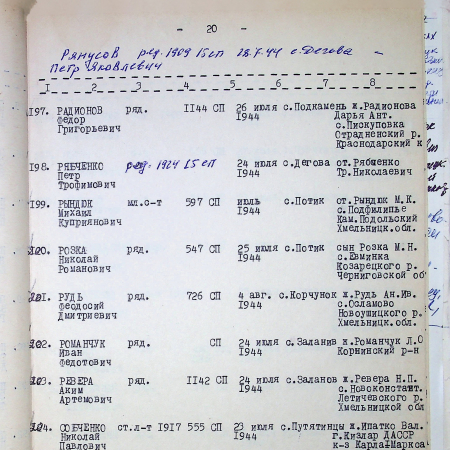 - 20 -
Рянусов ряд. 1909 15 сп 28.7.44 с.Дегова -
Петр Яковлевич
1 2 3 4 5 6 7 8
197. РАДИОНОВ ряд. 1144 СП 26 июля с.Подкамень ж.Радионова
Федор 1944 Дарья Ант.
Григорьевич с.Пискуповка
Отрадненский р.
Краснодарский к
198. РЯБЧЕНКО ряд. 1924 15 сп 24 июля с.Дегова от.Рябченко
Петр 1944 Тр.Николаевич
Трофимович
199. РЫНДЮК мл.с-т 597 СП июль с.Потик от.Рындюк М.К.
Михаил 1944 с.Подфилипье
Куприянович Кам.Подольский
Хмельницк.обл.
РОЗКА ряд. 547 СП 25 июля с.Потик сын Розка М.Н.
Николай 1944 с.Евминка
Романович Козарецкого р.
Черниговской об
РУДЬ ряд. 726 СП 4 авг. с.Корчунок ж.Рудь Ан.Ив.
Феодосий 1944 с.Осламово
Дмитриевич Новоушицкого р.
Хмельницк.обл.
РОМАНЧУК ряд. СП 24 июля с.Заланив ж.Романчук Л.О
Иван 1944 Корнинский р-н
Федотович
РЕВЕРА ряд. 1142 СП 24 июля с.Заланов ж.Ревера Н.П.
Аким 1944 с.Новоконстант.
Артемович Летичевского р.
Хмельницкой обл
СОБЧЕНКО ст.л-т 1917 555 СП 23 июля с.Путятинцы ж.Ипатко Вал.
Николай 1944 г.Кизлар ДАССР
Павлович к-з Карла-Маркса